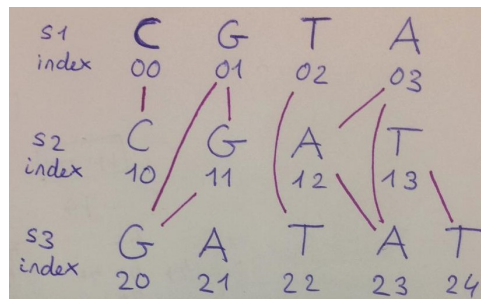 S1 C G T A
index 00 01 02 03
S2 C G A T
index 10 11 12 13
S3 G A T A T
index 20 21 22 23 24